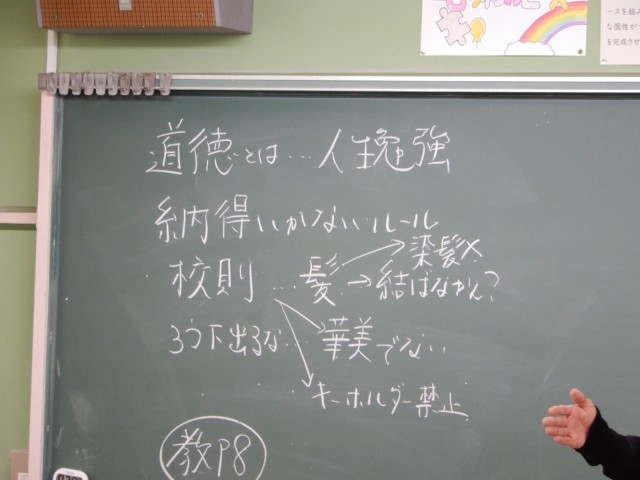 ースを組み
な個性が
を完成させ
道徳とは…人生勉強
納得いかないルール
染髪×
校則…髪→結ばなかん?
ろう下出るな… 華美でない
キーホルダー禁止
教P8